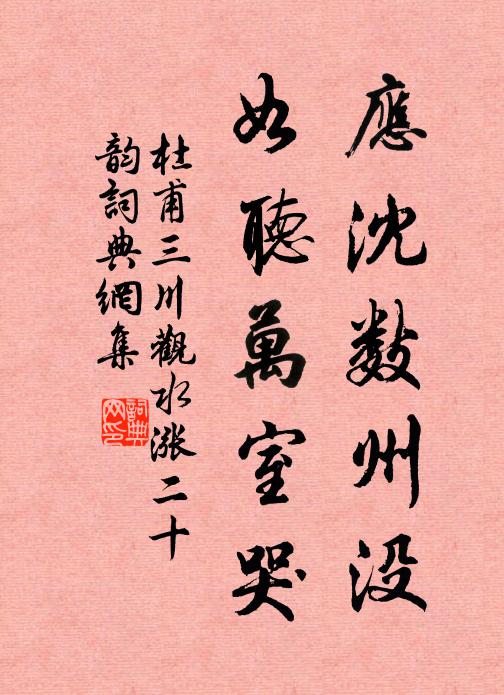 應沈數州没
如聽萬室哭
杜甫三川觀水漲二十
韵詞典網集
詞典
网印